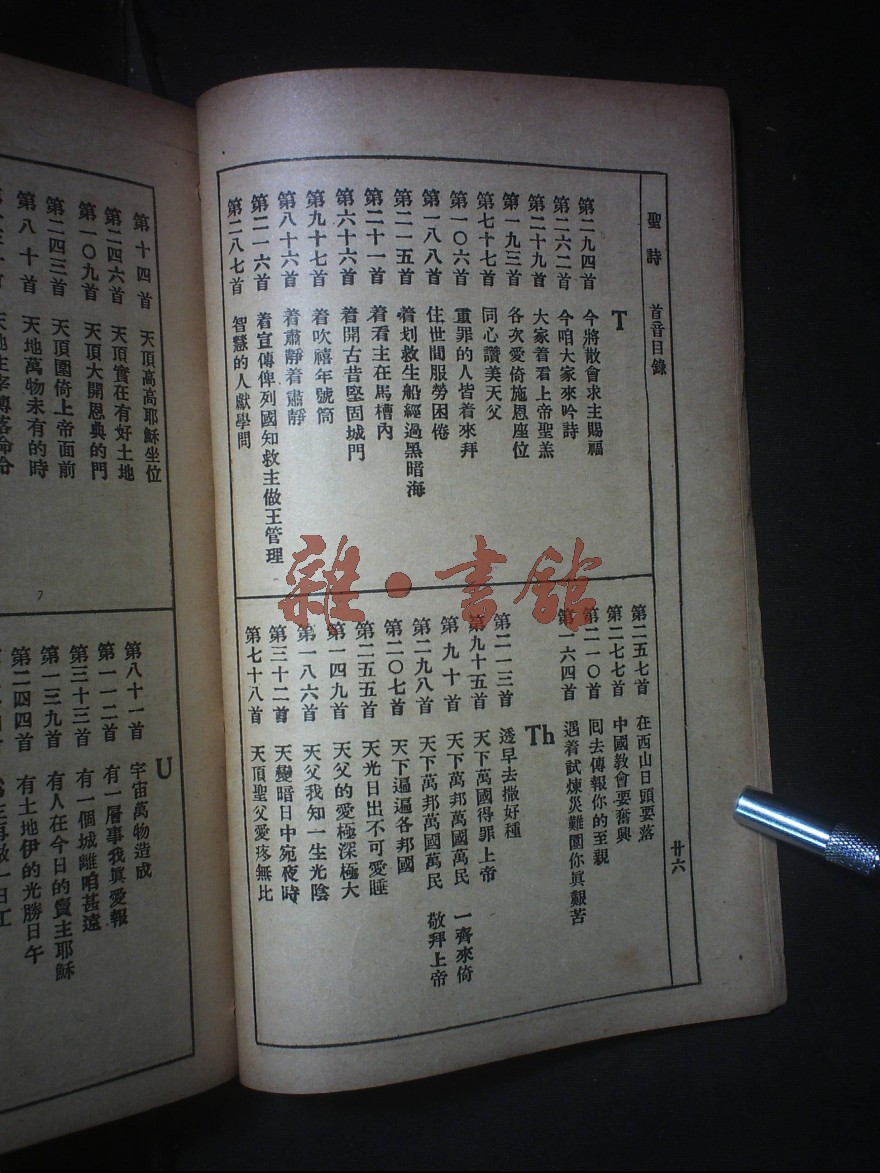 聖詩 首音目錄 廿六
T
第二九四首 今將散會求主賜福
第二六二首 今咱大家來吟詩
第二十九首 大家着看上帝聖羔
第一九三首 各次愛倚施恩座位
第七十七首 同心讚美天父
第一〇六首 重罪的人皆着來拜
第一八八首 住世間服勞困倦
第二一五首 着划救生船經過黑暗海
第二十一首 着看主在馬槽內
第六十六首 着開古昔堅固城門
第九十七首 着吹禧年號筒
第八十六首 着肅靜着肅靜
第二一六首 着宣傳俾列國知救主做王管理
第二八七首 智慧的人獻學問
第二五七首 在西山日頭要落
第二七七首 中國教會要奮興
第二一〇首 回去傳報你的至親
第一六四首 遇着試煉災難圍你眞艱苦
Th
第二一三首 透早去撒好種
第九十五首 天下萬國得罪上帝
第九十首 天下萬邦萬國萬民 一齊來倚
第二九八首 天下萬邦萬國萬民 敬拜上帝
第二〇七首 天下遍遍各邦國
第二五五首 天光日出不可愛睡
第一四九首 天父的愛極深極大
第一八六首 天父我知一生光陰
第三十二首 天變暗日中宛夜時
第七十八首 天頂聖父愛疼無比
第十四首 天頂高高耶穌坐位
第二四六首 天頂實在有好土地
第一〇九首 天頂大開恩典的門
第二四三首 天頂圍倚上帝面前
第八十首 天地萬物未有的時
U
第八十一首 宇宙萬物造成
第一一二首 有一層事我眞愛報
第三十三首 有一個城離咱甚遠
第一三九首 有人在今日的賣主耶穌
第二四四首 有土地伊的光勝日午
雜·書館